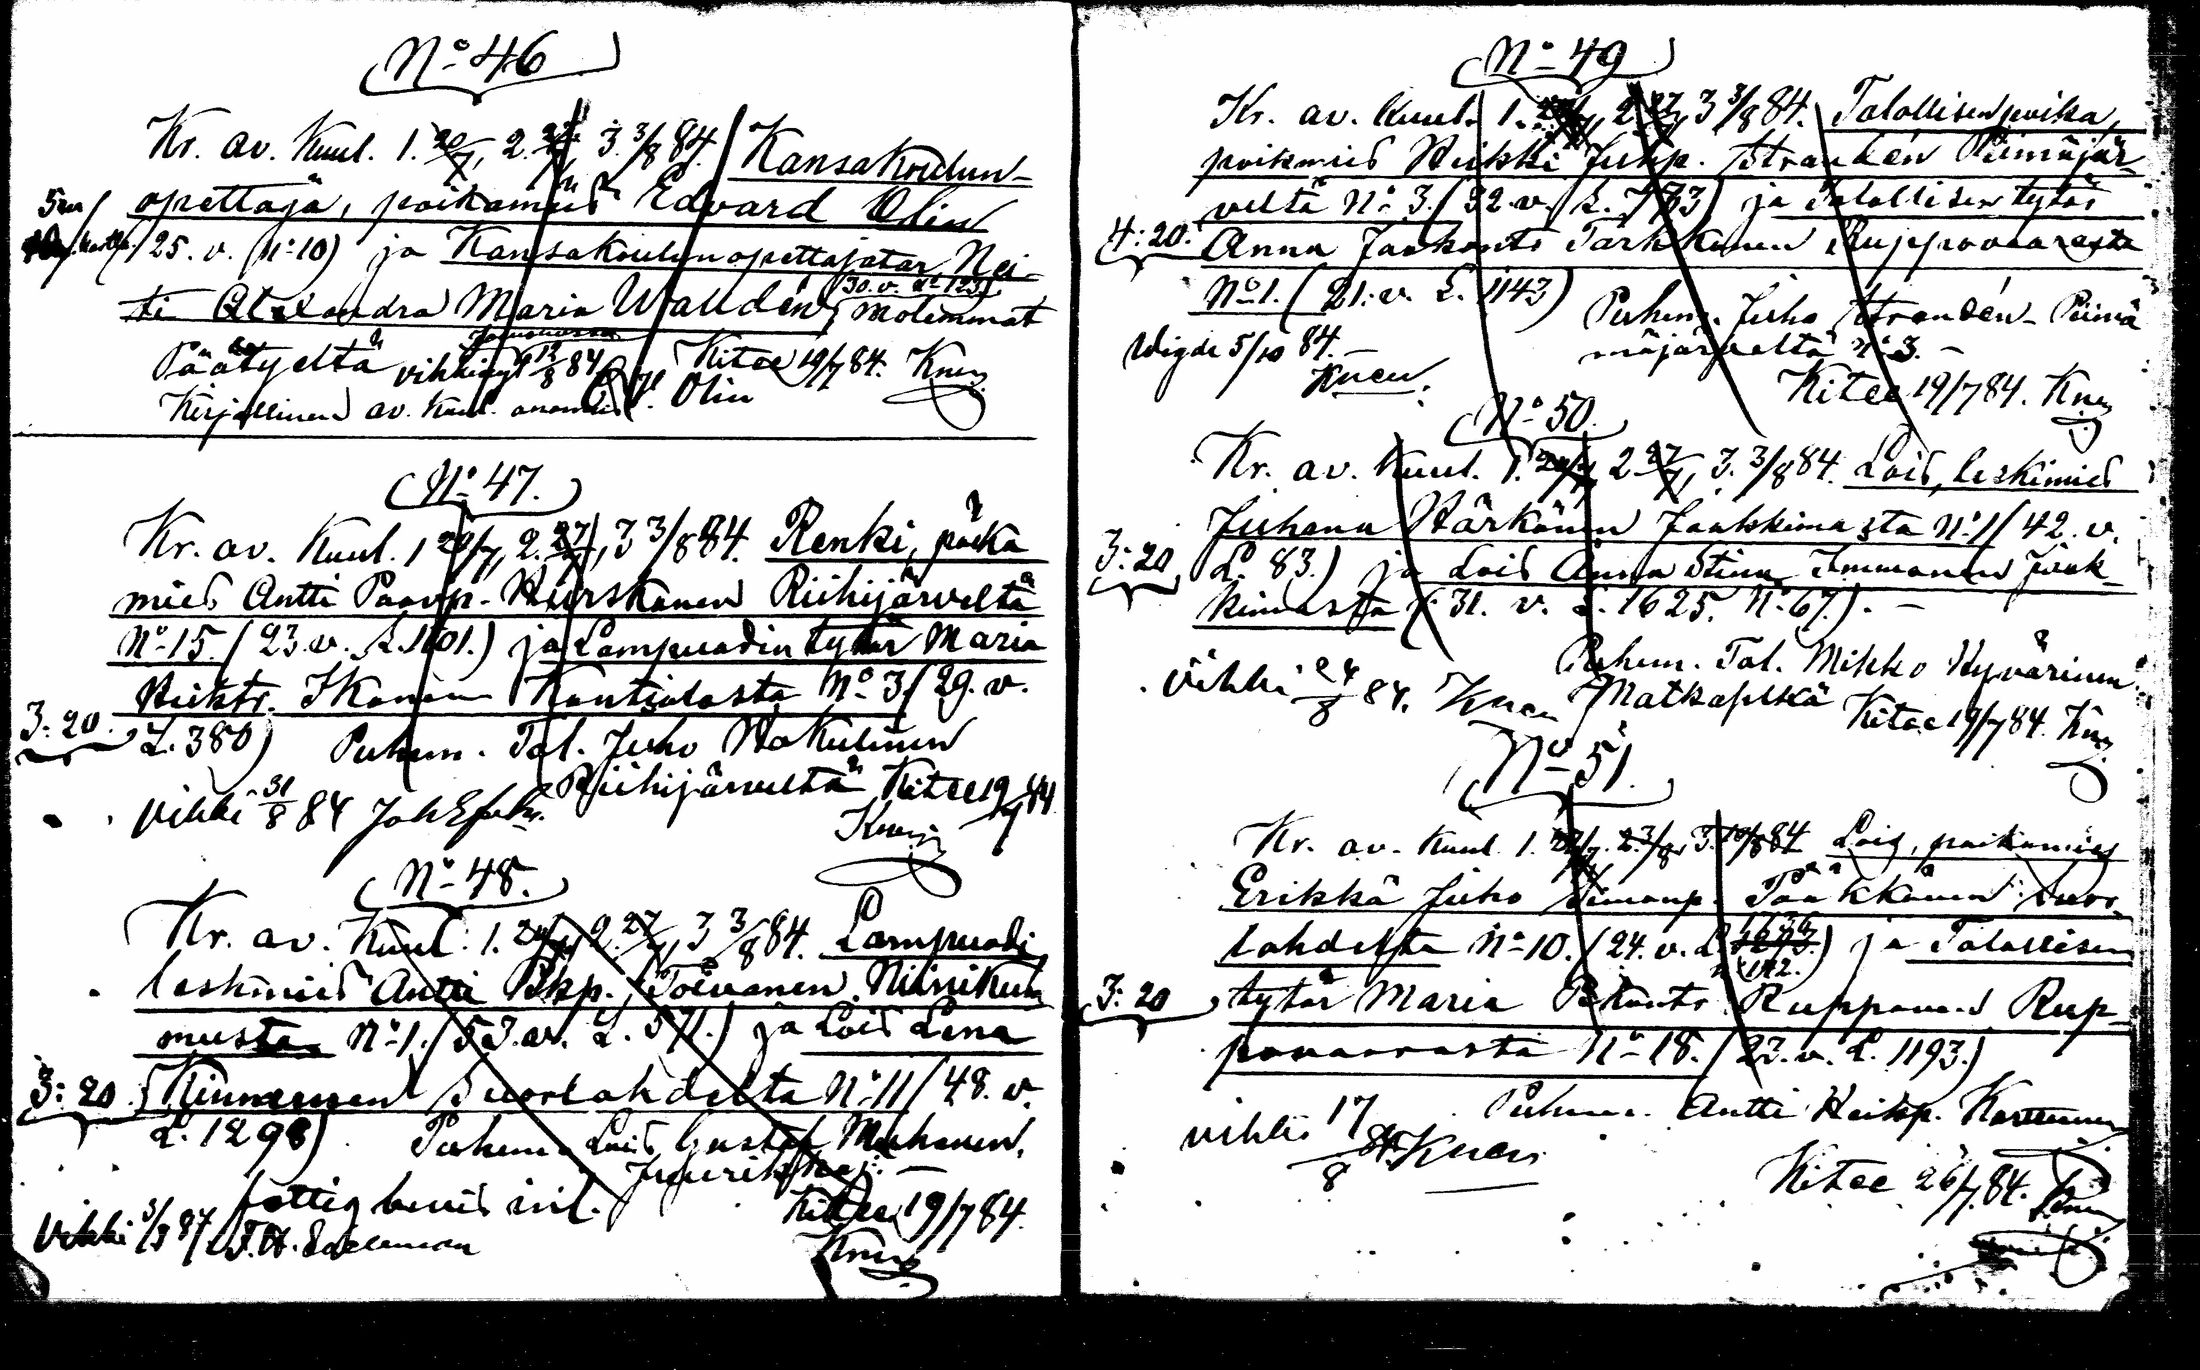 No 46
Kr. av. Kuul. 1. 20/7, 2. 27/7, 3. 3/8 84. Kansakoulun-
opettaja, poikamies Edvard Olin
(25. v. No 10) ja Kansakoulunopettajatar, Nei-
ti Alexandra Maria Waldén (30. v. No 123) molemmat
Päätyeltä vihkiny 12/8 84 Kitee 19/7 84. Knen
Kirjallinen av. kuul. anomus. Olin
No 47.
Kr. av. Kuul. 1 20/7, 2. 27/7, 3 3/8 84. Renki, poika
mies Antti Paavp. Hirskanen Riihijärveltä
No 15. (23. v. L. 1101.) ja Lampuodin tytär Maria
Heikts. Ikonen Kontiolasta No 3 (29. v.
3: 20.
L. 380) Puhem. Tal. Juho Hakulinen
Riihijärveltä Kitee 19/7 84
Vihki 31/8 84 Knen
No 48.
Kr. av. Kuul. 1. 20/7, 2. 27/7, 3 3/8 84. Lampuodi
leskimies Antti Pkp. Toivanen Niinikum
musta No 1. (53. v. L. 571.) ja Lois Lena
3: 20. Kinnunen Suorlahdelta No 11 (48. v.
L. 1298) Puhem. Lois Gustaf Muhonen,
Juurikka
fattig bevis inl.
Kitee 19/7 84.
Vihki 3/8 84
Knen
No 49
Kr. av. Kuul. 1. 20/7, 2. 27/7, 3 3/8 84. Talollisen poika,
poikmies Heikki Juhp. Strandén Piimäjär
veltä No 3. (32. v. L. 783) ja Talollisen tytär
4: 20. Anna Jaakonts Tarkkonen Ruppovaarasta
No 1. (21. v. L. 1143)
Puhem. Juho Strandén Piimä
Wigde 5/10 84. Knen
mäjärveltä No 3.
Kitee 19/7 84. Knen
No 50.
Kr. av. Kuul. 1. 20/7, 2 27/7, 3. 3/8 84. Lois, leskimies
Juhana Härkönen Jaakkimasta No 1 (42. v.
3: 20 L. 83.) ja Lois Anna Stina Immonen Jaak-
kimasta (31. v. L. 1625. No 67).
Puhem. Tal. Mikko Hyvärinen
Vihki 24/8 84. Knen Matkaselkä
Kitee 19/7 84. Knen
No 51.
Kr. av. Kuul. 1. 27/7, 2. 3/8, 3. 10/8 84 Lois, poikamies
Erikkä Juho Simonp. Pääkkönen Suor
lahdelta No 10. (24. v. L. 1636) ja Talollisen
3: 20 tytär Maria Rupponen Rup-
povaarasta No 18. (23. v. L. 1193.)
Puhem. Antti Heikp. Karvinen
vihki 17/8 84 Knen
Kitee 26/7 84. Knen